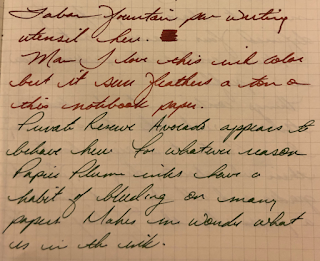 Faber Fountain pen writing
utensil here.
Man I love this ink color
but it sure feathers a ton on
this notebook paper.
Private Reserve Avocado appears to
behave here for whatever reason
Papier Plum inks have a
habit of bleeding on many
papers. Makes me wonder what
is in the ink.